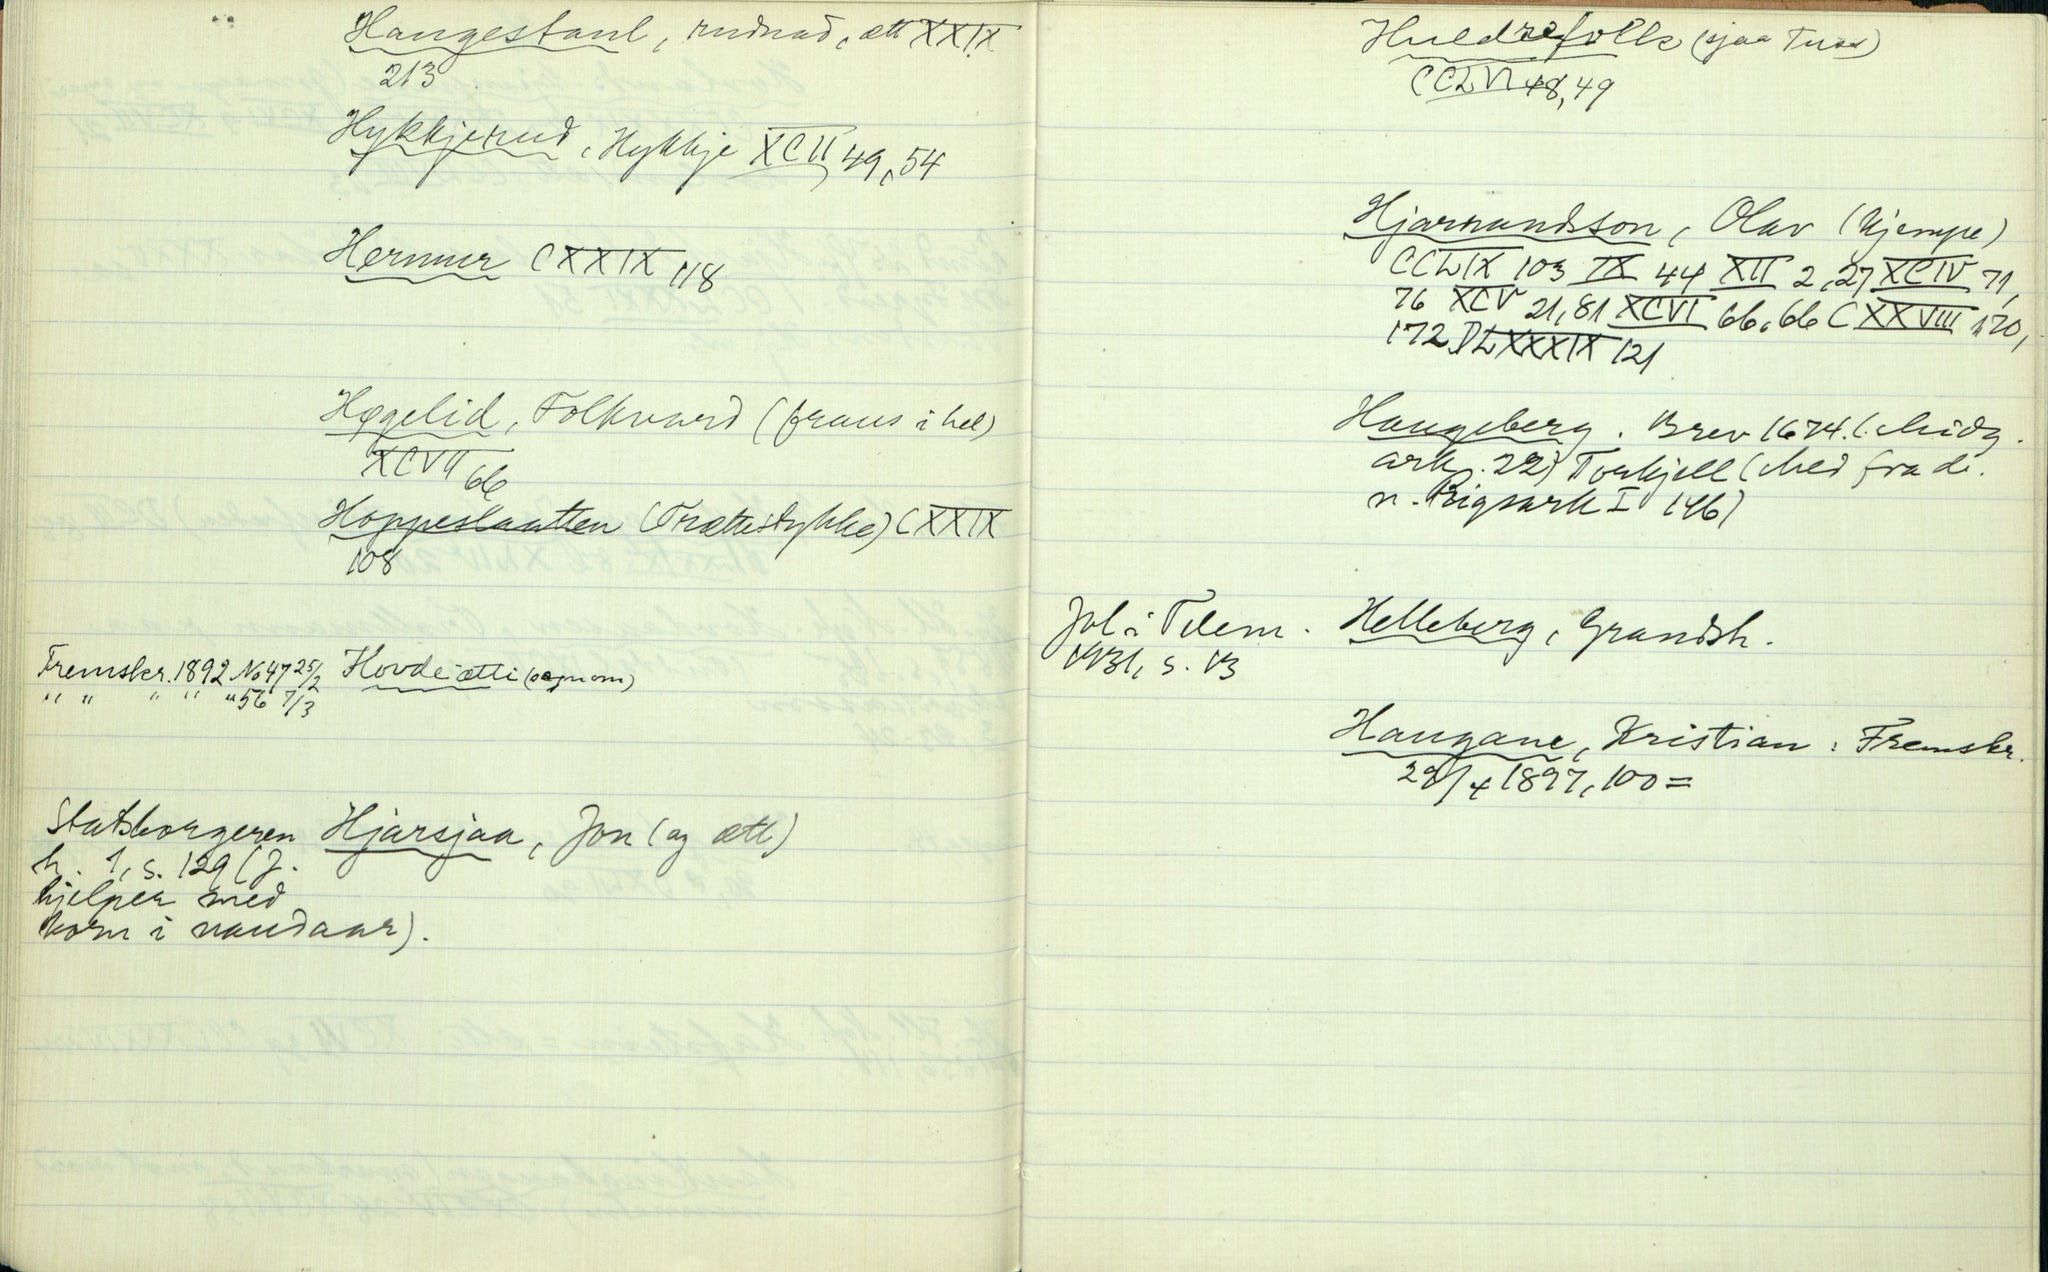 Haugestaul, rudnad, ætt XXIX
213
Hykkjerud, Hykkje XCII 49, 54
Hermur CXXIX 118
Hægelid, Folkvard (fraus i hel)
XCVII 66
Hoppeslaatten (Trættestykke) CXXIX
108
Fremskr. 1892 No 47 25/2 Hovdeætti (sogn om)
" " " " " 56 7/3
Statsborgeren Hjarsjaa, Jon (og ætt)
h. 1, s. 129 (J.
hjelper med
korn i naudaar).
Huldrefolk (sjaa Tuss)
CCLVI 48, 49
Hjarrandson, Olav (Kjempe)
CCLIX 103 IX 44 XII 2, 27 XCIV 71,
76 XCV 21, 81 XCVI 66, 66 CXXVIII 170,
172 DLXXXIX 121
Haugeberg. Brev 1674. (Midg.
ark. 22) Torkjell (Med fra d.
n. Rigsark I 146)
Jol i Telem. Helleberg, Gransh.
1931, s. 13
Haugane, Kristian: Fremskr.
29/4 1897, 100 =